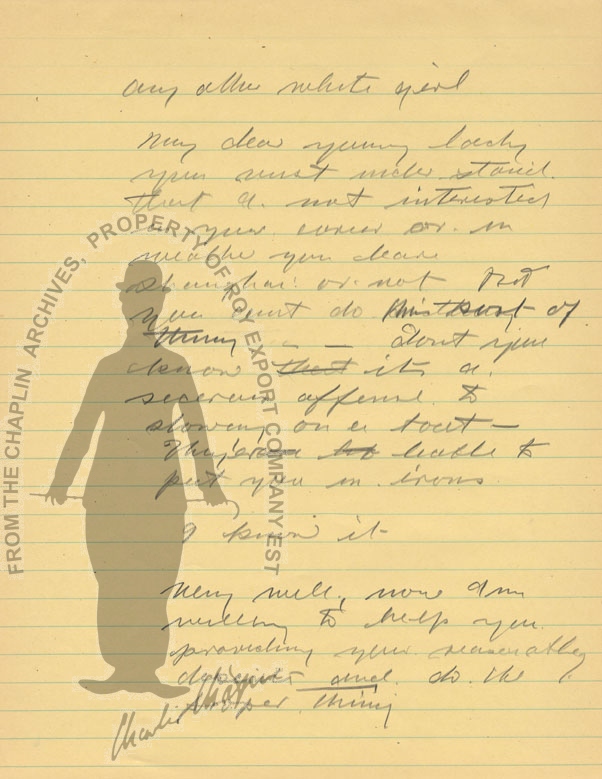 any other white girl
My dear young lady
you must understand.
that I'm not interested
in your career or in
weathe you leave
Shanghai or not But
you can't do this sort of
thing — Dont you
know that its a
serious offense to
stowing on a boat —
They're liable to
put you in irons
I know it
Very well, now I'm
willing to help you
providing your reasonable
and do the
proper thing
FROM THE CHAPLIN ARCHIVES, PROPERTY OF ROY EXPORT COMPANY EST
Charlie Chaplin